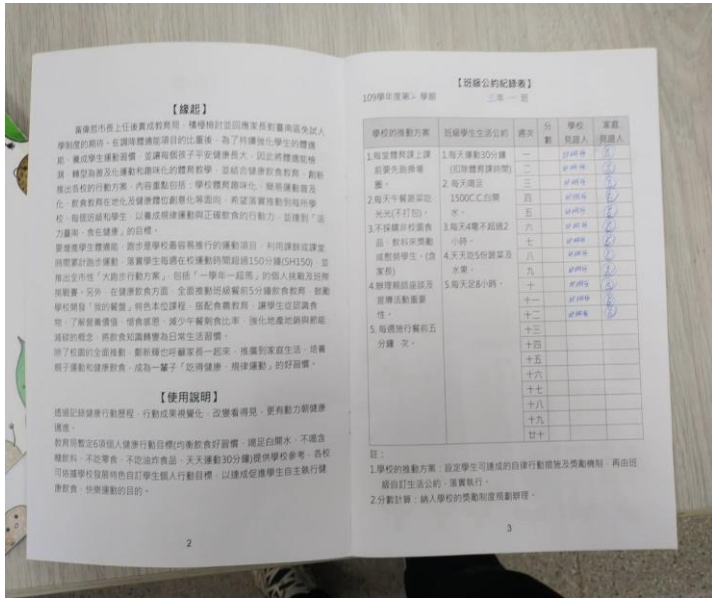 【緣起】
黃偉哲市長上任後責成教育局，積極檢討並回應家長對臺南區免試入
學制度的期待。在調降體適能項目的比重後，為了持續強化學生的體適
能、養成學生運動習慣，並讓每個孩子平安健康長大，因此將體適能檢
測，轉型為普及化運動和趣味化的體育教學，並結合健康飲食教育，創新
推出各校的行動方案，內容重點包括：學校體育趣味化、簡易運動普及
化、飲食教育在地化及健康體位創意化等面向，希望落實推動到每所學
校、每個班級和學生，以養成規律運動與正確飲食的行動力，並達到「活
力臺南，食在健康」的目標。
要增進學生體適能，跑步是學校最容易推行的運動項目，利用課餘或課堂
時間累計跑步運動，落實學生每週在校運動時間超過150分鐘(SH150)，並
推出全市性「大跑步行動方案」，包括「一學年一超馬」的個人挑戰及班際
挑戰賽。另外，在健康飲食方面，全面推動班級餐前5分鐘飲食教育，鼓勵
學校開發「我的餐盤」特色本位課程，搭配食農教育，讓學生從認識食
物、了解營養價值、惜食感恩、減少午餐剩食比率，強化地產地銷與節能
減碳的概念，將飲食知識轉變為日常生活習慣。
除了校園的全面推動，鄭新輝也呼籲家長一起來，推廣到家庭生活，培養
親子運動和健康飲食，成為一輩子「吃得健康、規律運動」的好習慣。
【使用說明】
透過記錄健康行動歷程，行動成果視覺化，改變看得見，更有動力朝健康
邁進。
教育局暫定6項個人健康行動目標(均衡飲食好習慣、喝足白開水、不喝含
糖飲料、不吃零食、不吃油炸食品、天天運動30分鐘)提供學校參考，各校
可依據學校發展特色自訂學生個人行動目標，以達成促進學生自主執行健
康飲食、快樂運動的目的。
2
【班級公約紀錄表】
109學年度第2學期
三年 一 班
學校的推動方案 班級學生生活公約 週次 分數 學校見證人 家庭見證人
1.每堂體育課上課
前要先跑操場
圈。
2.每天午餐蔬菜吃
光光(不打包)。
3.不採購非校園食
品、飲料來獎勵
或慰勞學生。(含
家長)
4.辦理親師座談及
宣導活動重要
性。
5.每週施行餐前五
分鐘 次。
1.每天運動30分鐘
(扣除體育課時間)
2.每天喝足
1500C.C.白開
水。
3.每天4電不超過2
小時。
4.天天吃5份蔬菜及
水果。
5.每天足8小時。
一
二
三
四
五
六
七
八
九
十
十一
十二
十三
十四
十五
十六
十七
十八
十九
廿十
註：
1.學校的推動方案：設定學生可達成的自律行動措施及獎勵機制，再由班
級自訂生活公約，落實執行。
2.分數計算：納入學校的獎勵制度規劃辦理。
3